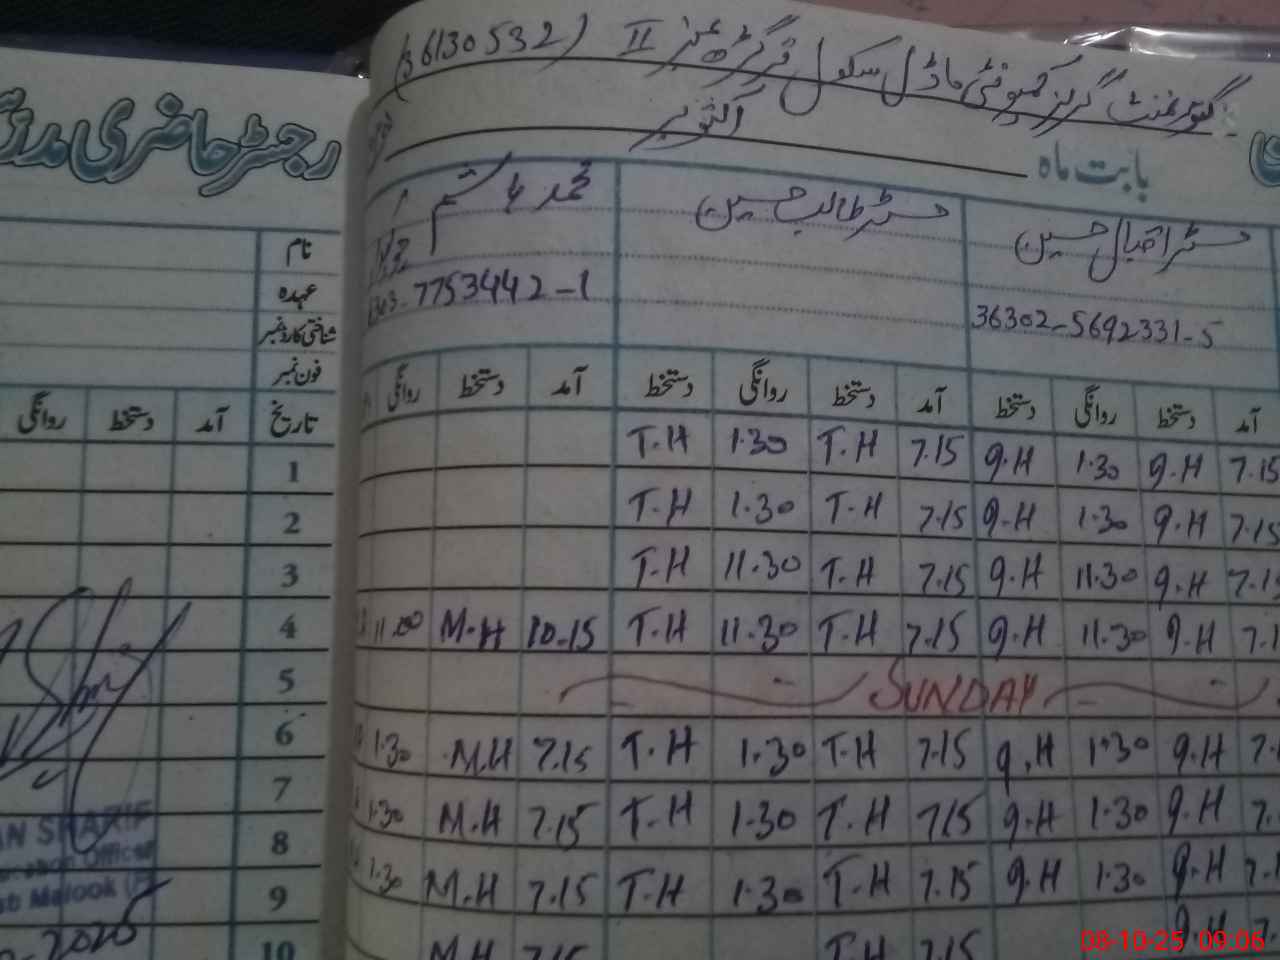 گورنمنٹ گرلز کمیونٹی ماڈل سکول II (36130532)
بابت ماہ اکتوبر
مسٹر اقبال حسین مسٹر طالب حسین محمد ہاشم
36302-5692331-5 7753442-1
آمد دستخط روانگی دستخط آمد دستخط روانگی دستخط آمد دستخط روانگی
7.15 g.H 1.30 g.H 7.15 T.H 1.30 T.H
7.15 g.H 1.30 g.H 7.15 T.H 1.30 T.H
7.15 g.H 11.30 g.H 7.15 T.H 11.30 T.H
7.1 g.H 11.30 g.H 7.15 T.H 11.30 T.H 10.15 M.H 11.00
SUNDAY
7. g.H 1.30 g.H 7.15 T.H 1.30 T.H 7.15 M.H 1.30
7. g.H 1.30 g.H 7.15 T.H 1.30 T.H 7.15 M.H 1.30
7.1 g.H 1.30 g.H 7.15 T.H 1.30 T.H 7.15 M.H 1.30
7. g.H 7.15 T.H 7.15 M.H
رجسٹر حاضری
نام
عہدہ
شناختی کارڈ نمبر
فون نمبر
تاریخ آمد دستخط روانگی
1
2
3
4
5
6
7
8
9
10
AN SHARIF
Officer
Malook
2025
08-10-25 09:06